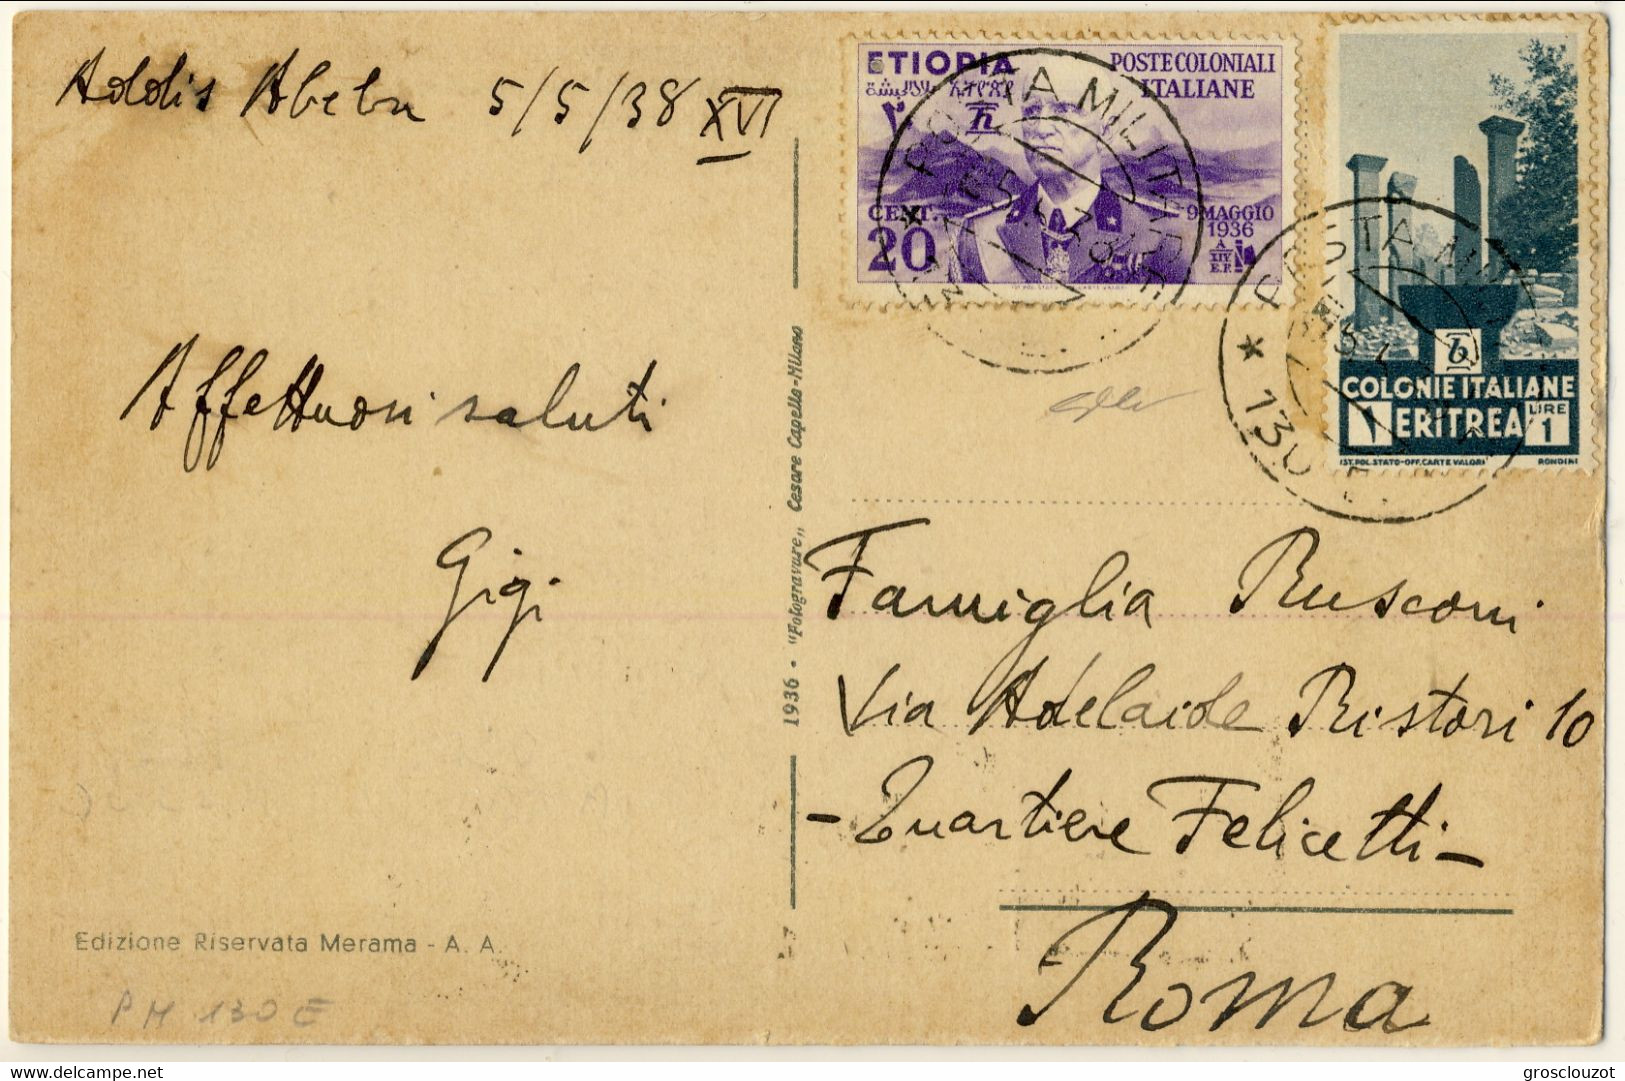 Addis Abeba 5/5/38 XVI
Affettuosi saluti
Gigi
Edizione Riservata Merama - A. A.
PM 130 E
1936 - "Fotogravure„ Cesare Capello-Milano
ETIOPIA
POSTE COLONIALI
ITALIANE
CENT.
20
9 MAGGIO
1936
A.
XIV
E.F.
POSTA MILITARE
COLONIE ITALIANE
ERITREA
LIRE
1
IST. POL. STATO-OFF. CARTE VALORI
RONDINI
130 E
Famiglia Rusconi
Via Adelaide Ristori 10
- Quartiere Felicetti -
Roma
grosclouzot